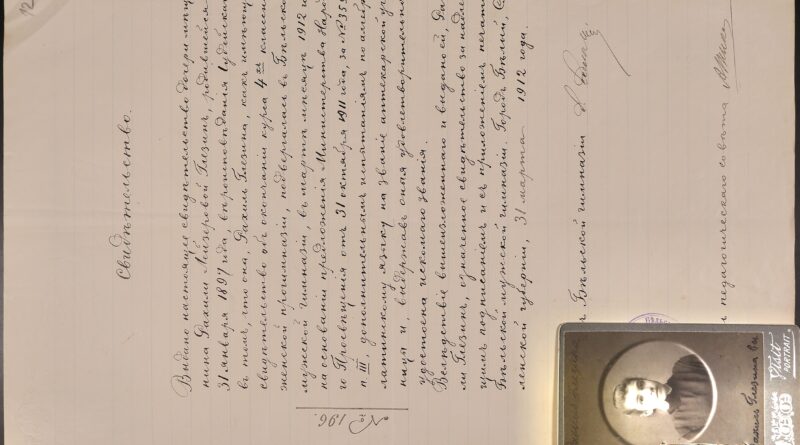 Свидѣтельство.
Выдано настоящее свидѣтельство дочери мѣща
нина Рахили Лейзеровой Глезинъ, родившейся
31 января 1897 года, вѣроисповѣданія Іудейска
въ томъ, что она, Рахиль Глезина, какъ имѣющ
свидѣтельство объ окончаніи курса 4хъ классо
женской прогимназіи, подвергалась въ Бѣльско
мужской гимназіи, въ мартѣ мѣсяцѣ 1912 
на основаніи предложенія Министерства Народ
го Просвѣщенія отъ 31 октября 1911 года, за № 353
п. III, дополнительнымъ испытаніямъ по алгебр
латинскому языку на званіе аптекарской уч
ницы и, выдержавъ оныя удовлетворительно
удостоена искомаго званія.
Вслѣдствіе вышеизложеннаго и выдано ей, Ра
ли Глезинъ, означенное свидѣтельство за надле
щимъ подписаніемъ и съ приложеніемъ печат
Бѣльской мужской гимназіи. Городъ Бѣлый, С
ленской губерніи, 31 марта 1912 года.
№ 196.
ъ Бѣльской гимназіи
ь педагогическаго совѣта
Рахиль Глезина
Visit
PORTRAIT